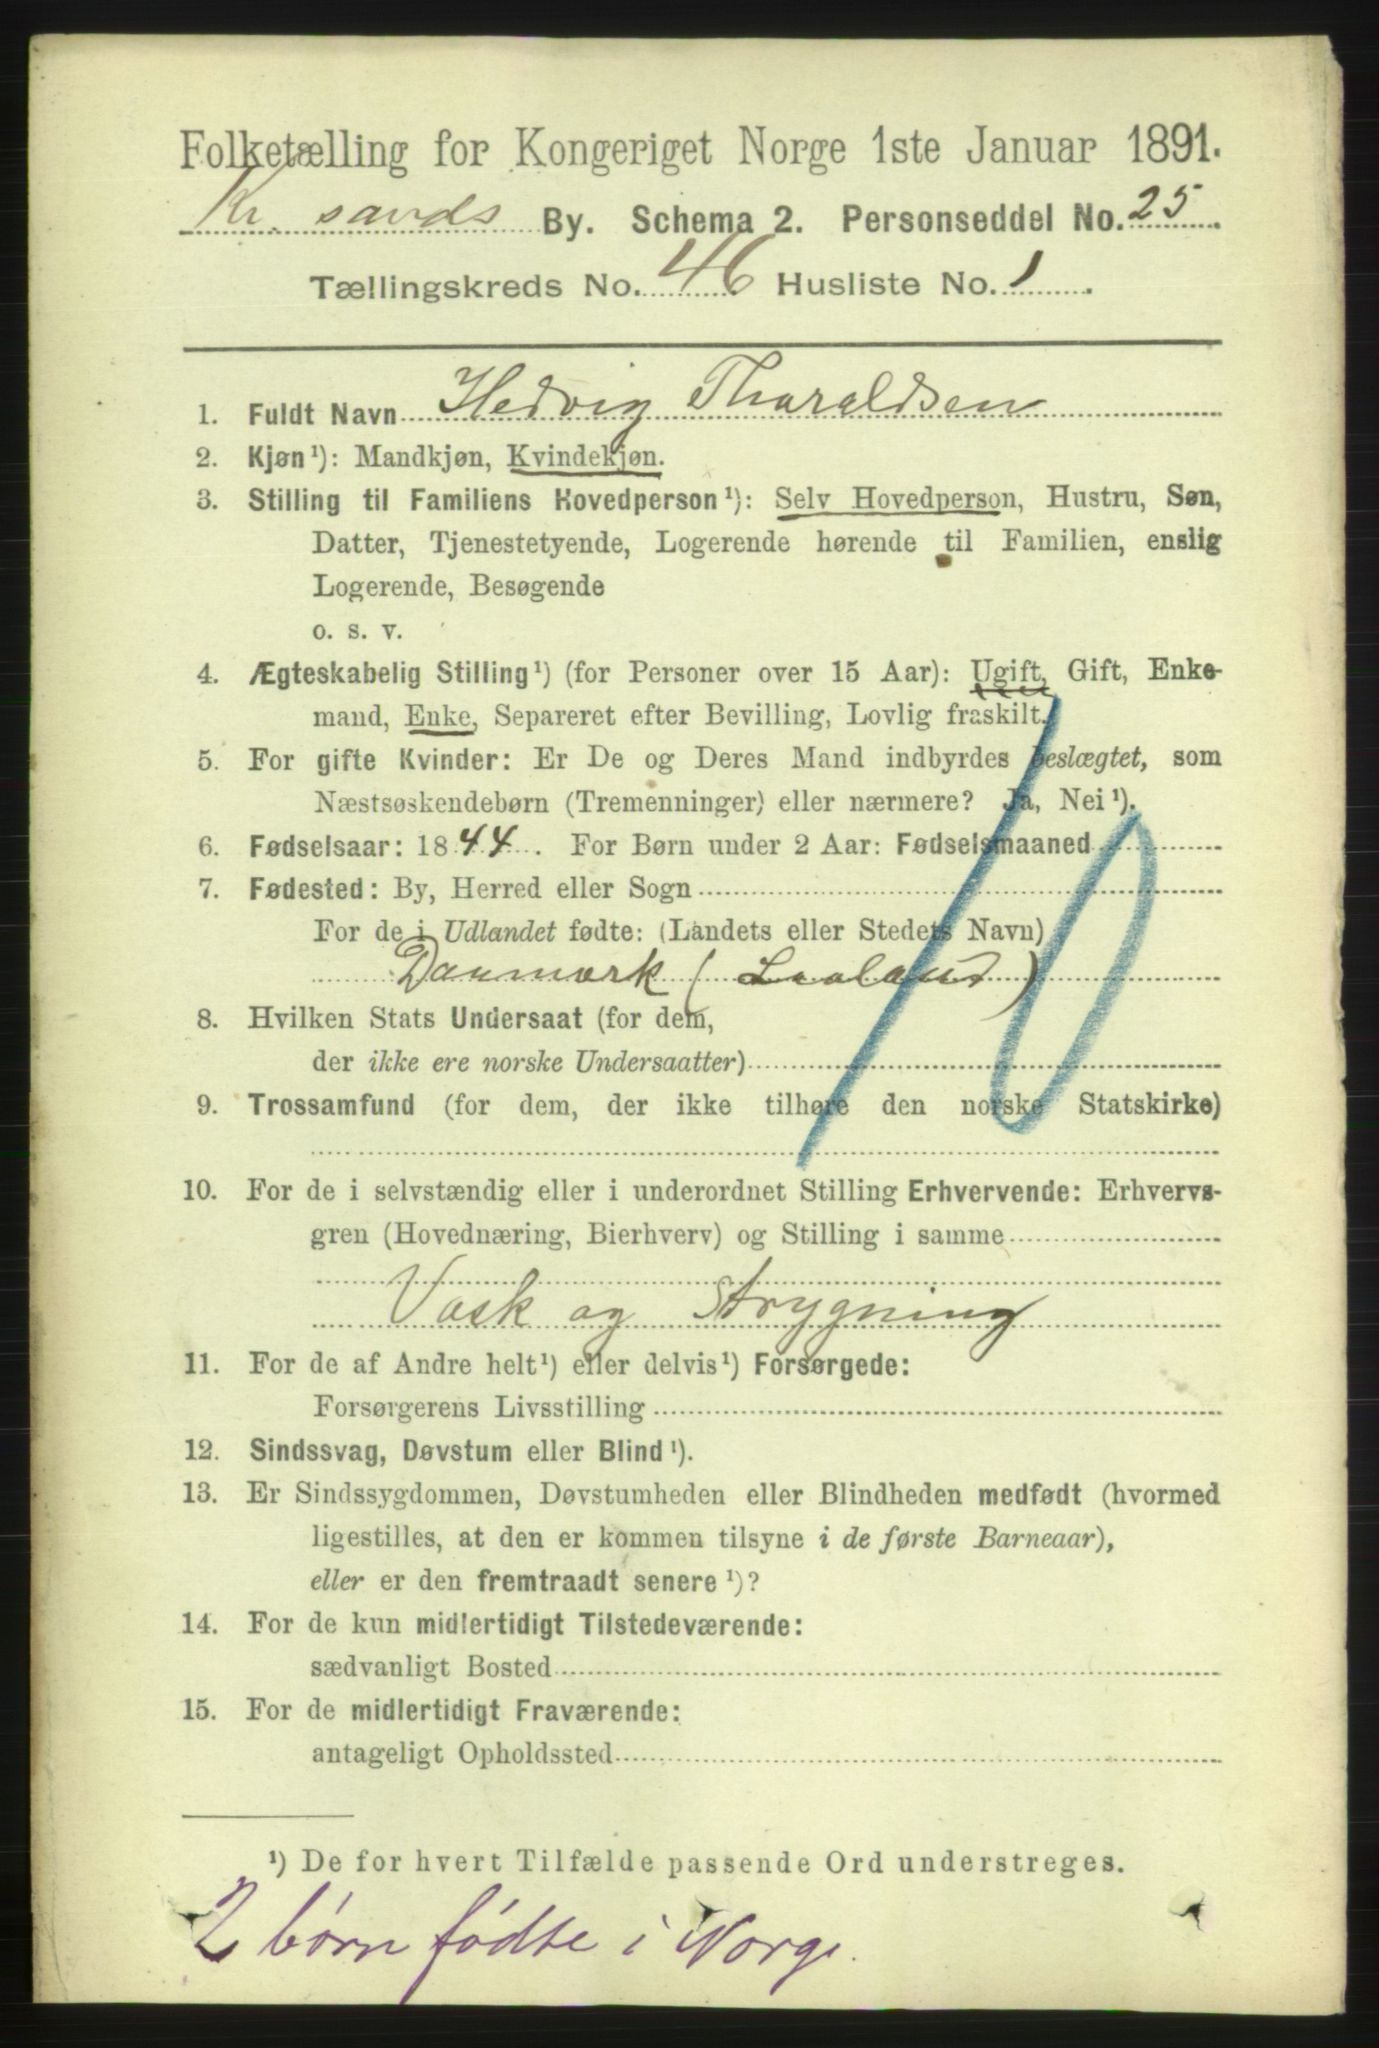 Folketælling for Kongeriget Norge 1ste Januar 1891.
Kr. sands By. Schema 2. Personseddel No. 25
Tællingskreds No. 46 Husliste No. 1
1. Fuldt Navn Hedvig Tharaldsen
2. Kjøn¹): Mandkjøn, Kvindekjøn.
3. Stilling til Familiens Hovedperson¹): Selv Hovedperson, Hustru, Søn,
Datter, Tjenestetyende, Logerende hørende til Familien, enslig
Logerende, Besøgende
o. s. v.
4. Ægteskabelig Stilling¹) (for Personer over 15 Aar): Ugift, Gift, Enke-
mand, Enke, Separeret efter Bevilling, Lovlig fraskilt.
5. For gifte Kvinder: Er De og Deres Mand indbyrdes beslægtet, som
Næstsøskendebørn (Tremenninger) eller nærmere? Ja, Nei¹).
6. Fødselsaar: 1844. For Børn under 2 Aar: Fødselsmaaned
7. Fødested: By, Herred eller Sogn
For de i Udlandet fødte: (Landets eller Stedets Navn)
Danmark (Laaland)
8. Hvilken Stats Undersaat (for dem,
der ikke ere norske Undersaatter)
9. Trossamfund (for dem, der ikke tilhøre den norske Statskirke)
10
10. For de i selvstændig eller i underordnet Stilling Erhvervende: Erhvervs-
gren (Hovednæring, Bierhverv) og Stilling i samme
Vask og Strygning
11. For de af Andre helt¹) eller delvis¹) Forsørgede:
Forsørgerens Livsstilling
12. Sindssvag, Døvstum eller Blind¹).
13. Er Sindssygdommen, Døvstumheden eller Blindheden medfødt (hvormed
ligestilles, at den er kommen tilsyne i de første Barneaar),
eller er den fremtraadt senere¹)?
14. For de kun midlertidigt Tilstedeværende:
sædvanligt Bosted
15. For de midlertidigt Fraværende:
antageligt Opholdssted
¹) De for hvert Tilfælde passende Ord understreges.
2 børn fødte i Norge.